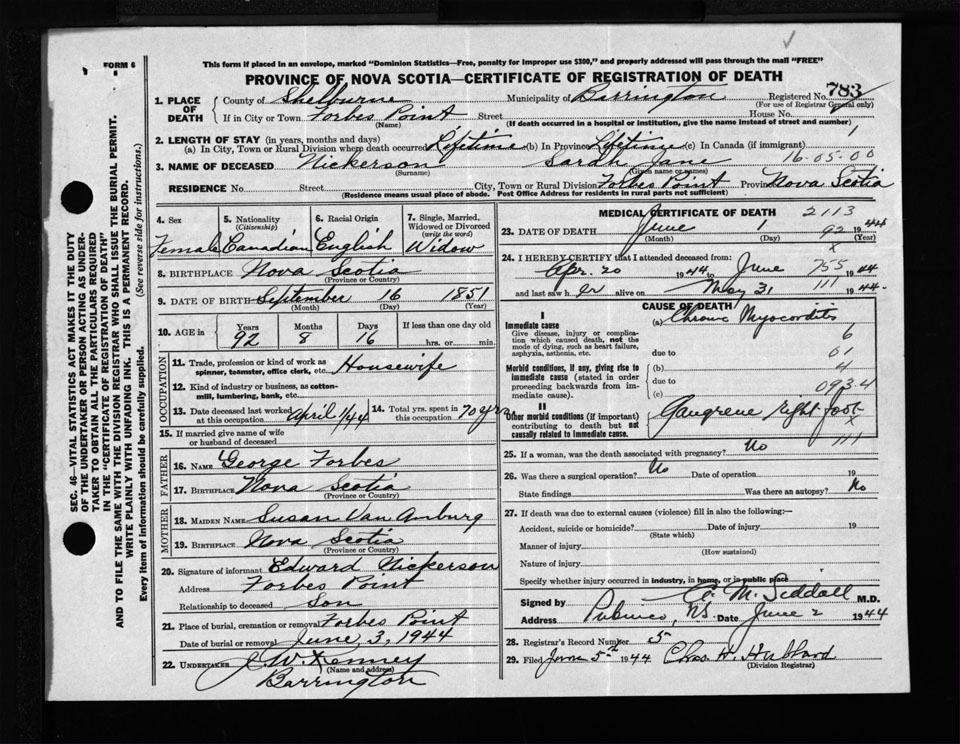 FORM 6
This form if placed in an envelope, marked "Dominion Statistics—Free, penalty for improper use $300," and properly addressed will pass through the mail "FREE"
PROVINCE OF NOVA SCOTIA—CERTIFICATE OF REGISTRATION OF DEATH
1. PLACE OF DEATH County of Shelburne Municipality of Barrington Registered No. 783
(For use of Registrar General only)
If in City or Town Forbes Point Street House No.
(Name) (If death occurred in a hospital or institution, give the name instead of street and number)
2. LENGTH OF STAY (in years, months and days)
(a) In City, Town or Rural Division where death occurred Lifetime (b) In Province Lifetime (c) In Canada (if immigrant) 1
3. NAME OF DECEASED Nickerson Sarah Jane 16-05-00
(Surname) (Given name or names)
RESIDENCE No. Street City, Town or Rural Division Forbes Point Province Nova Scotia
(Residence means usual place of abode. Post Office Address for residents in rural parts not sufficient)
4. Sex 5. Nationality (Citizenship) 6. Racial Origin 7. Single, Married, Widowed or Divorced (write the word)
Female Canadian English Widow
8. BIRTHPLACE Nova Scotia
(Province or Country)
9. DATE OF BIRTH September 16 1851
(Month) (Day) (Year)
10. AGE in Years Months Days If less than one day old
92 8 16 hrs. or min.
OCCUPATION
11. Trade, profession or kind of work as spinner, teamster, office clerk, etc. Housewife
12. Kind of industry or business, as cotton-mill, lumbering, bank, etc.
13. Date deceased last worked at this occupation April/44 14. Total yrs. spent in this occupation 70 yrs
15. If married give name of wife or husband of deceased
FATHER
16. NAME George Forbes
17. BIRTHPLACE Nova Scotia
(Province or Country)
MOTHER
18. MAIDEN NAME Susan Van Amburg
19. BIRTHPLACE Nova Scotia
(Province or Country)
20. Signature of informant Edward Nickerson
Address Forbes Point
Relationship to deceased Son
21. Place of burial, cremation or removal Forbes Point
Date of burial or removal June 3, 1944
22. UNDERTAKER J. W. Kenney
(Name and address)
Barrington
MEDICAL CERTIFICATE OF DEATH 2113
23. DATE OF DEATH June 1 1944
(Month) (Day) (Year)
92
x
24. I HEREBY CERTIFY that I attended deceased from:
Apr. 20 1944 to June 755 1944
and last saw her alive on May 31 111 1944
CAUSE OF DEATH
I
Immediate cause
Give disease, injury or complication which caused death, not the mode of dying, such as heart failure, asphyxia, asthenia, etc.
(a) Chronic Myocarditis
6
due to 01
Morbid conditions, if any, giving rise to immediate cause (stated in order proceeding backwards from immediate).
(b) 4
due to
(c) 093-4
II
Other morbid conditions (if important) contributing to death but not causally related to immediate cause.
Gangrene right foot
x
111
25. If a woman, was the death associated with pregnancy? No
26. Was there a surgical operation? No Date of operation 19
State findings Was there an autopsy? No
27. If death was due to external causes (violence) fill in also the following:—
Accident, suicide or homicide? Date of injury 19
(State which)
Manner of injury
(How sustained)
Nature of injury
Specify whether injury occurred in industry, in home, or in public place
Signed by A. M. Siddall M.D.
Address Pubnico, N.S. Date June 2 1944
28. Registrar's Record Number 5
29. Filed June 5th 1944 Chas. H. Hubbard
(Division Registrar)
SEC. 46—VITAL STATISTICS ACT MAKES IT THE DUTY
OF THE UNDERTAKER OR PERSON ACTING AS UNDER-
TAKER TO OBTAIN ALL THE PARTICULARS REQUIRED
IN THE "CERTIFICATE OF REGISTRATION OF DEATH"
AND TO FILE THE SAME WITH THE DIVISION REGISTRAR WHO SHALL ISSUE THE BURIAL PERMIT.
WRITE PLAINLY WITH UNFADING INK. THIS IS A PERMANENT RECORD.
Every item of information should be carefully supplied. (See reverse side for instructions.)